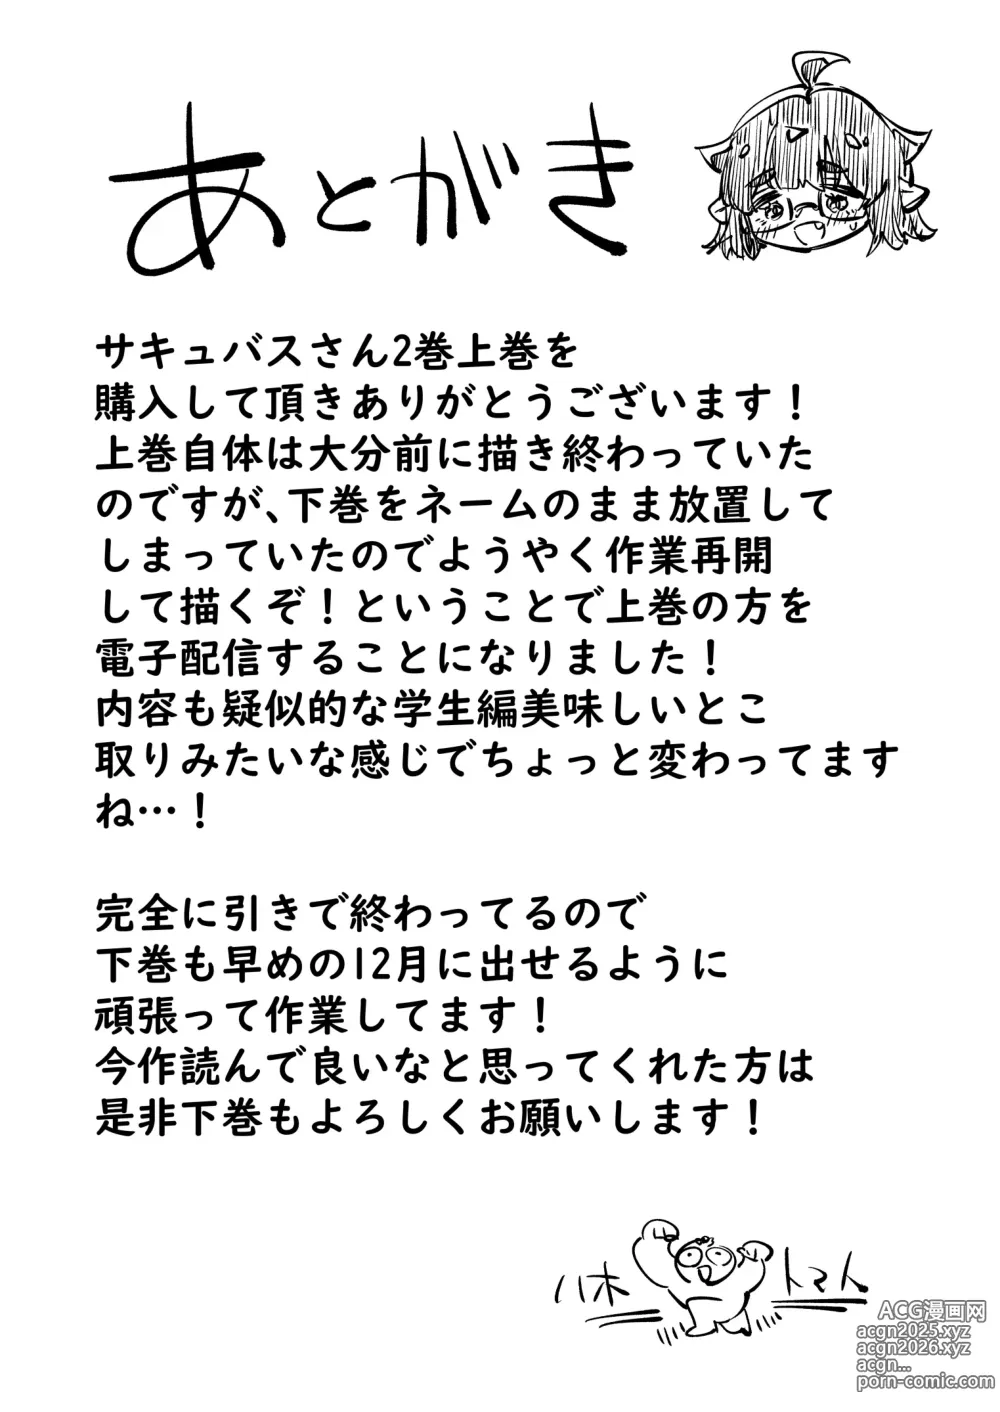 あとがき
サキュバスさん2巻上巻を
購入して頂きありがとうございます！
上巻自体は大分前に描き終わっていた
のですが、下巻をネームのまま放置して
しまっていたのでようやく作業再開
して描くぞ！ということで上巻の方を
電子配信することになりました！
内容も疑似的な学生編美味しいとこ
取りみたいな感じでちょっと変わってます
ね…！
完全に引きで終わってるので
下巻も早めの12月に出せるように
頑張って作業してます！
今作読んで良いなと思ってくれた方は
是非下巻もよろしくお願いします！
八木
トマト
ACG漫画网
acgn2025.xyz
acgn2026.xyz
acgn...
porn-comic.com